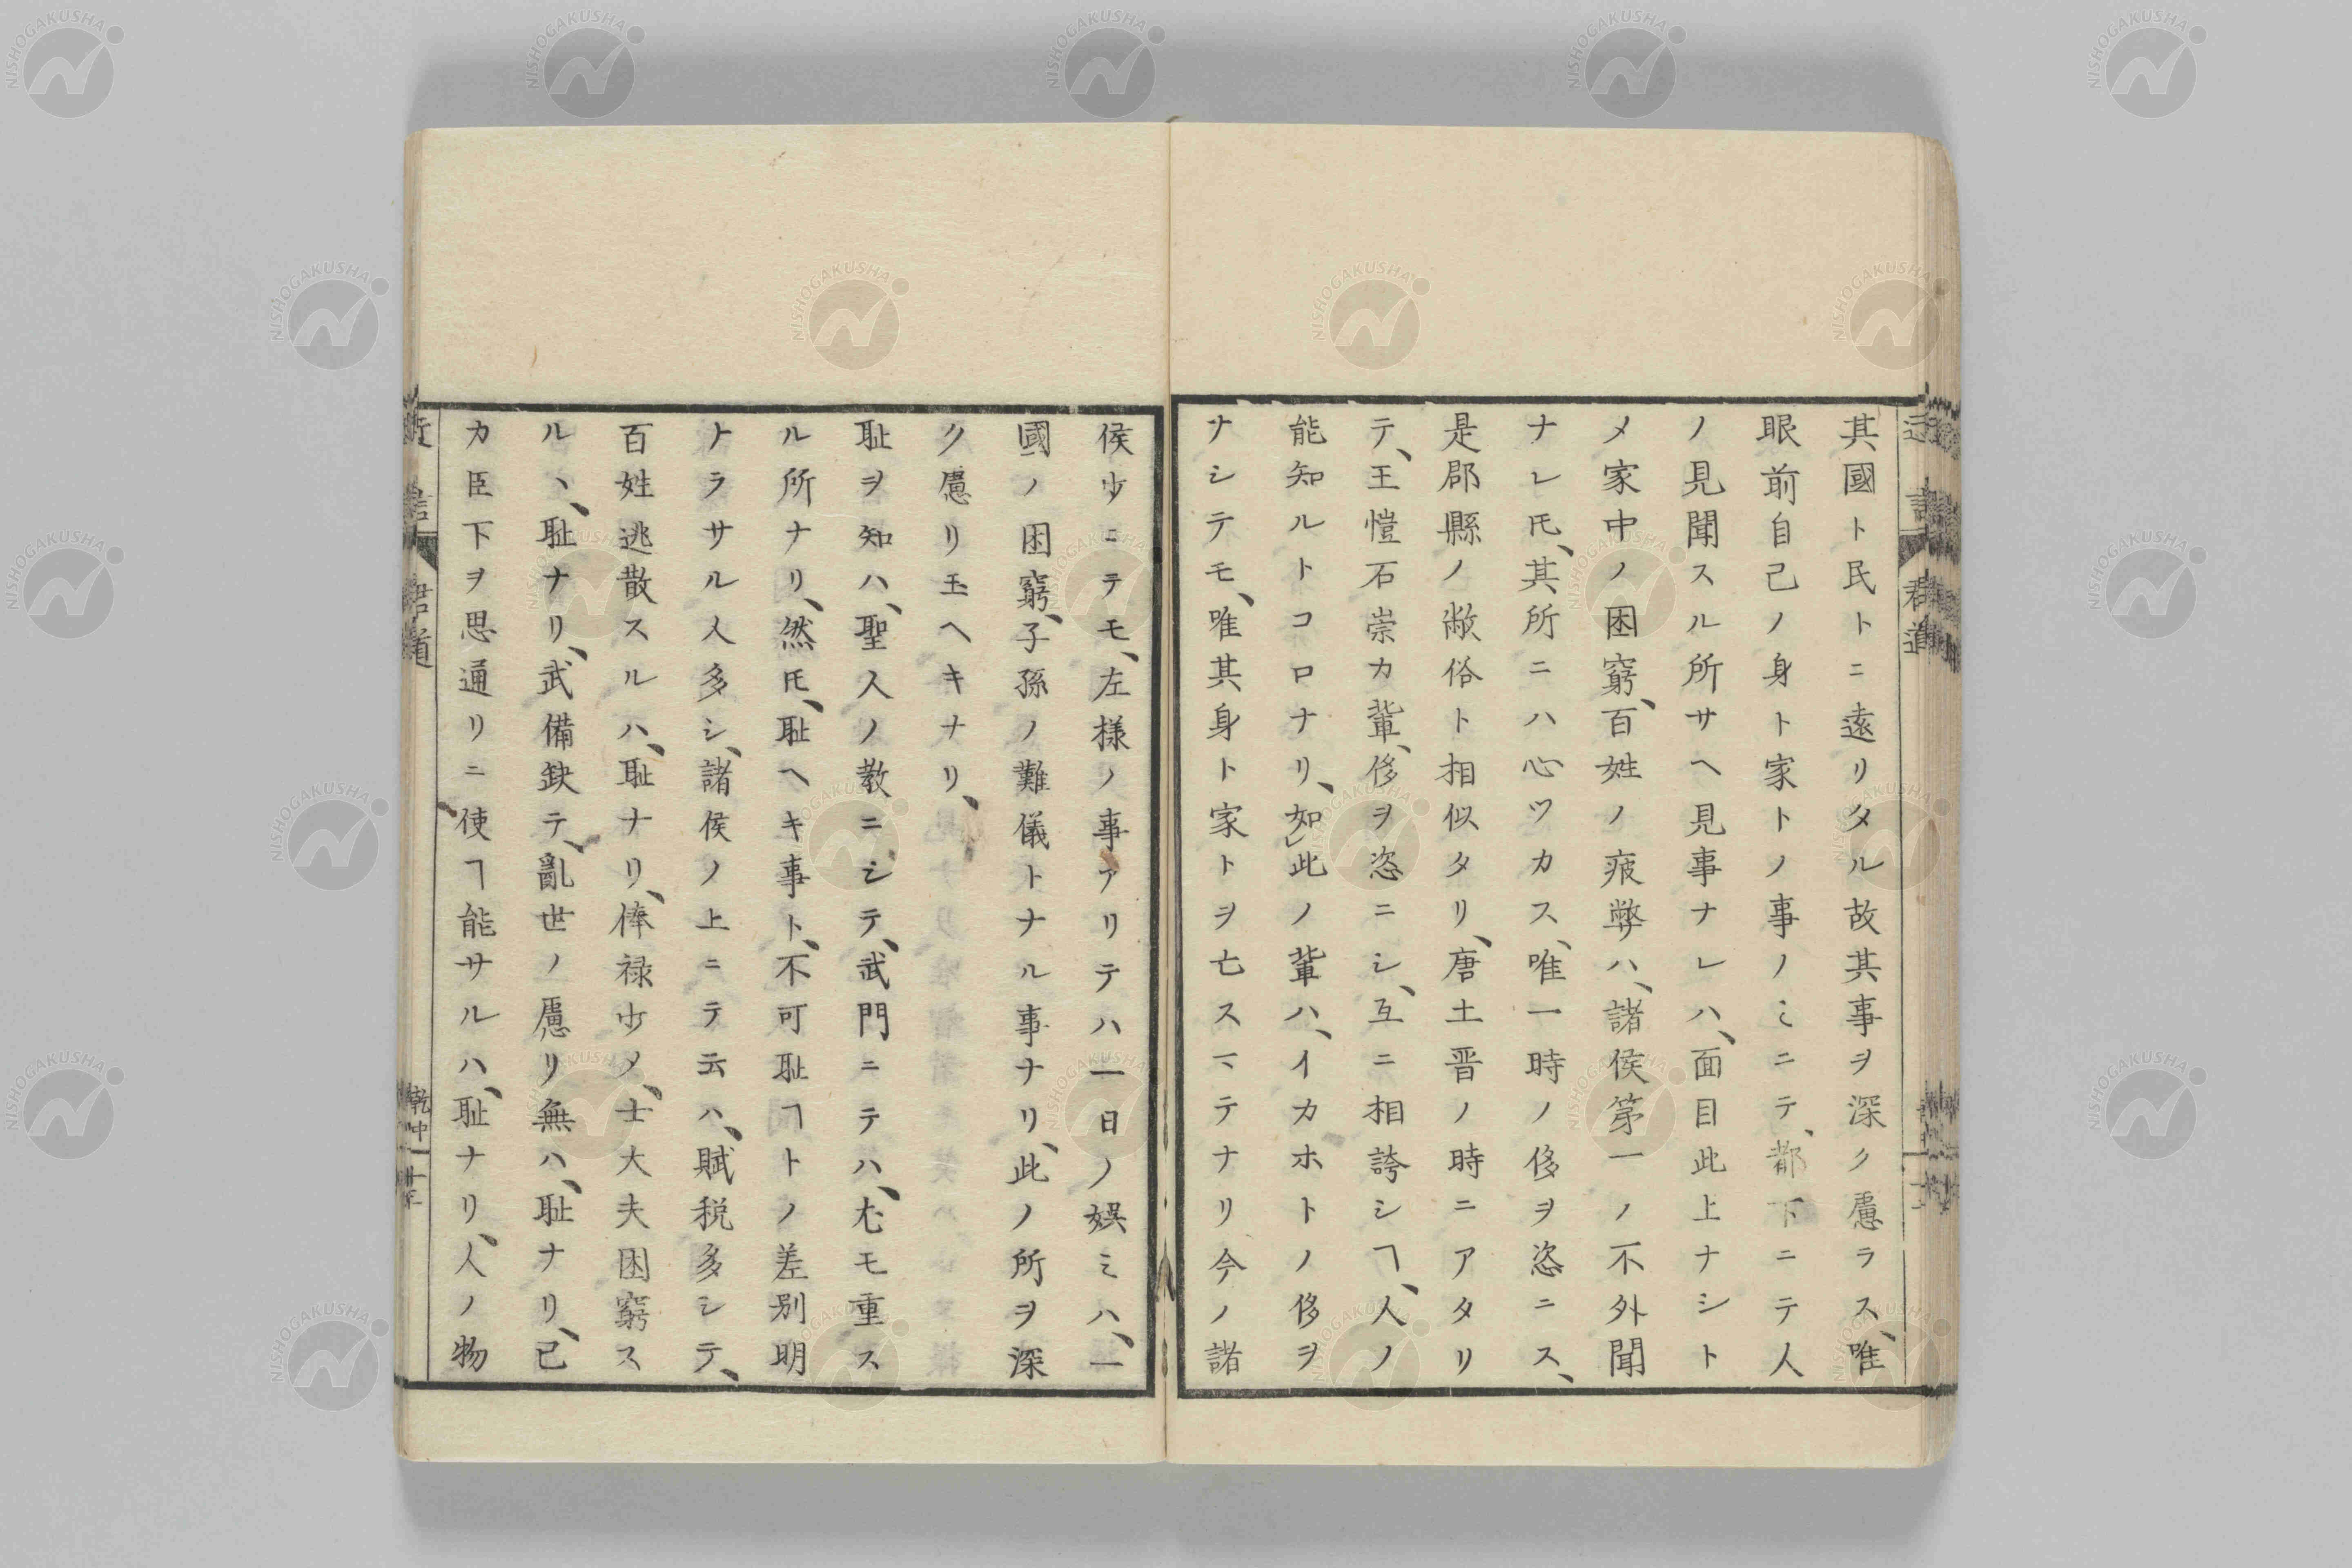 其國ト民トニ遠リタル故其事ヲ深ク慮ラス、唯
眼前自己ノ身ト家トノ事ノミニテ、都下ニテ人
ノ見聞スル所サヘ見事ナレハ、面目此上ナシト
メ家中ノ困窮、百姓ノ疲弊ハ、諸侯第一ノ不外聞
ナレ𪜈、其所ニハ心ツカス、唯一時ノ侈ヲ恣ニス、
是郡縣ノ敝俗ト相似タリ、唐土晋ノ時ニアタリ
テ、王愷石崇カ輩、侈ヲ恣ニシ、互ニ相誇シヿ、人ノ
能知ルトコロナリ、如此ノ輩ハ、イカホトノ侈ヲ
ナシテモ、唯其身ト家トヲ亡スマテナリ今ノ諸
侯少ニテモ、左様ノ事アリテハ一日ノ娯ミハ、一
國ノ困窮、子孫ノ難儀トナル事ナリ、此ノ所ヲ深
ク慮リ玉ヘキナリ、
耻ヲ知ハ、聖人ノ教ニシテ、武門ニテハ、尤モ重ス
ル所ナリ、然𪜈、耻ヘキ事ト、不可耻ヿトノ差别明
ナラサル人多シ、諸侯ノ上ニテ云ハ、賦税多シテ、
百姓逃散スルハ、耻ナリ、俸禄少メ、士大夫困窮ス
ルヽ、耻ナリ、武備缺テ、亂世ノ慮リ無ハ、耻ナリ、己
カ臣下ヲ思通リニ使ヿ能サルハ、耻ナリ、人ノ物
君道
乾中
NISHOGAKUSHA